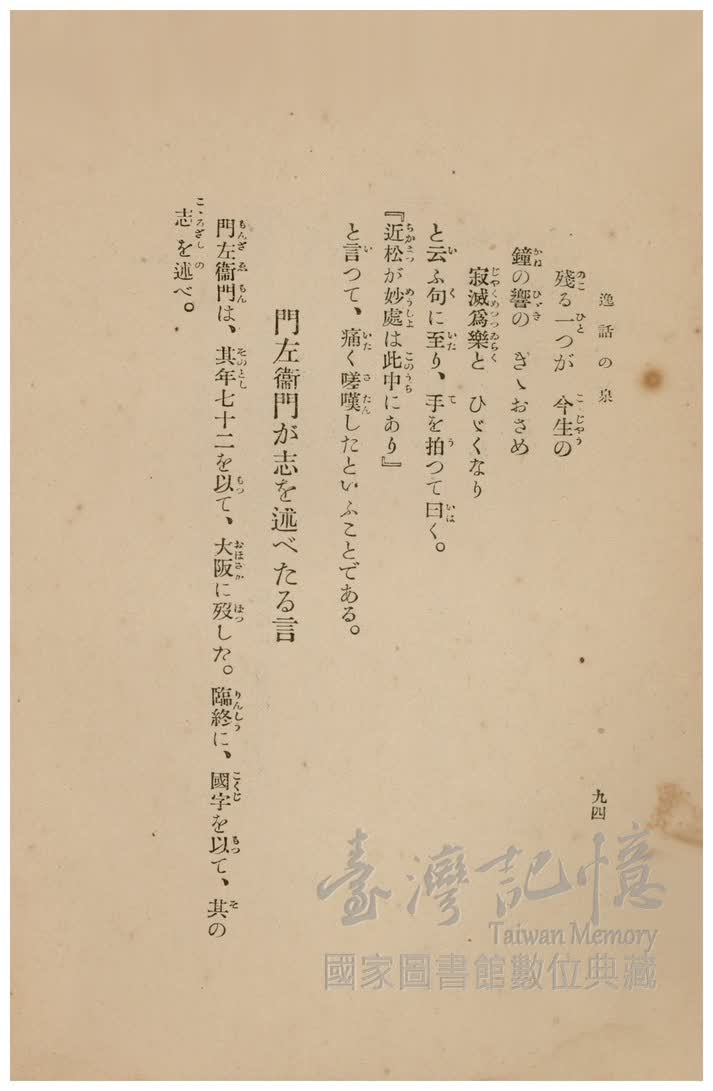 逸話の泉
九四
残る一つが 今生の
鐘の響の きゝおさめ
寂滅爲樂と ひゞくなり
と云ふ句に至り、手を拍つて曰く。
『近松が妙處は此中にあり』
と言つて、痛く嗟嘆したといふことである。
門左衞門が志を述べたる言
門左衞門は、其年七十二を以て、大阪に歿した。臨終に、國字を以て、其の
志を述べ。
臺灣記憶
Taiwan Memory
國家圖書館數位典藏